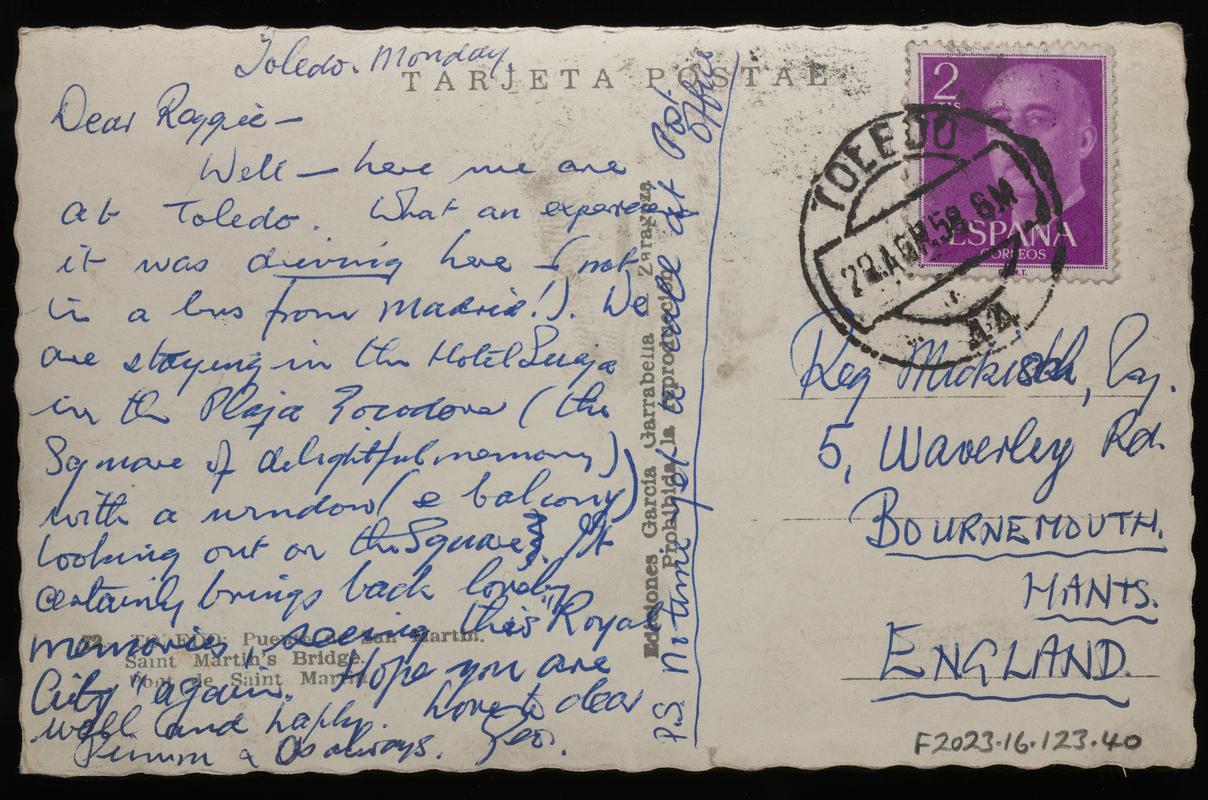 Toledo. Monday.
TARJETA POSTAL
Dear Reggie –
Well – here we are
at Toledo. What an experience
it was driving here – (not
in a bus from Madrid!). We
are staying in the Hotel Suizo
in the Plaza Zocodover (the
Square of delightful memory)
with a window (& balcony)
looking out on the Square. It
certainly brings back lovely
memories, seeing this "Royal
City" again. Hope you are
well and happy. Love to dear
& as always. Geo.
72. TOLEDO: Puente de San Martín.
Saint Martin's Bridge.
Pont de Saint Martin
Ediciones García Garrabella Zaragoza
Prohibida la reproducción
P.S. Nothing yet to date at Post
Office
2
PTS
ESPAÑA
CORREOS
TOLEDO
22.AGO.58. 6M
Reg Mickisch, Esq.
5, Waverley Rd.
BOURNEMOUTH.
HANTS.
ENGLAND.
F2023.16.123.40